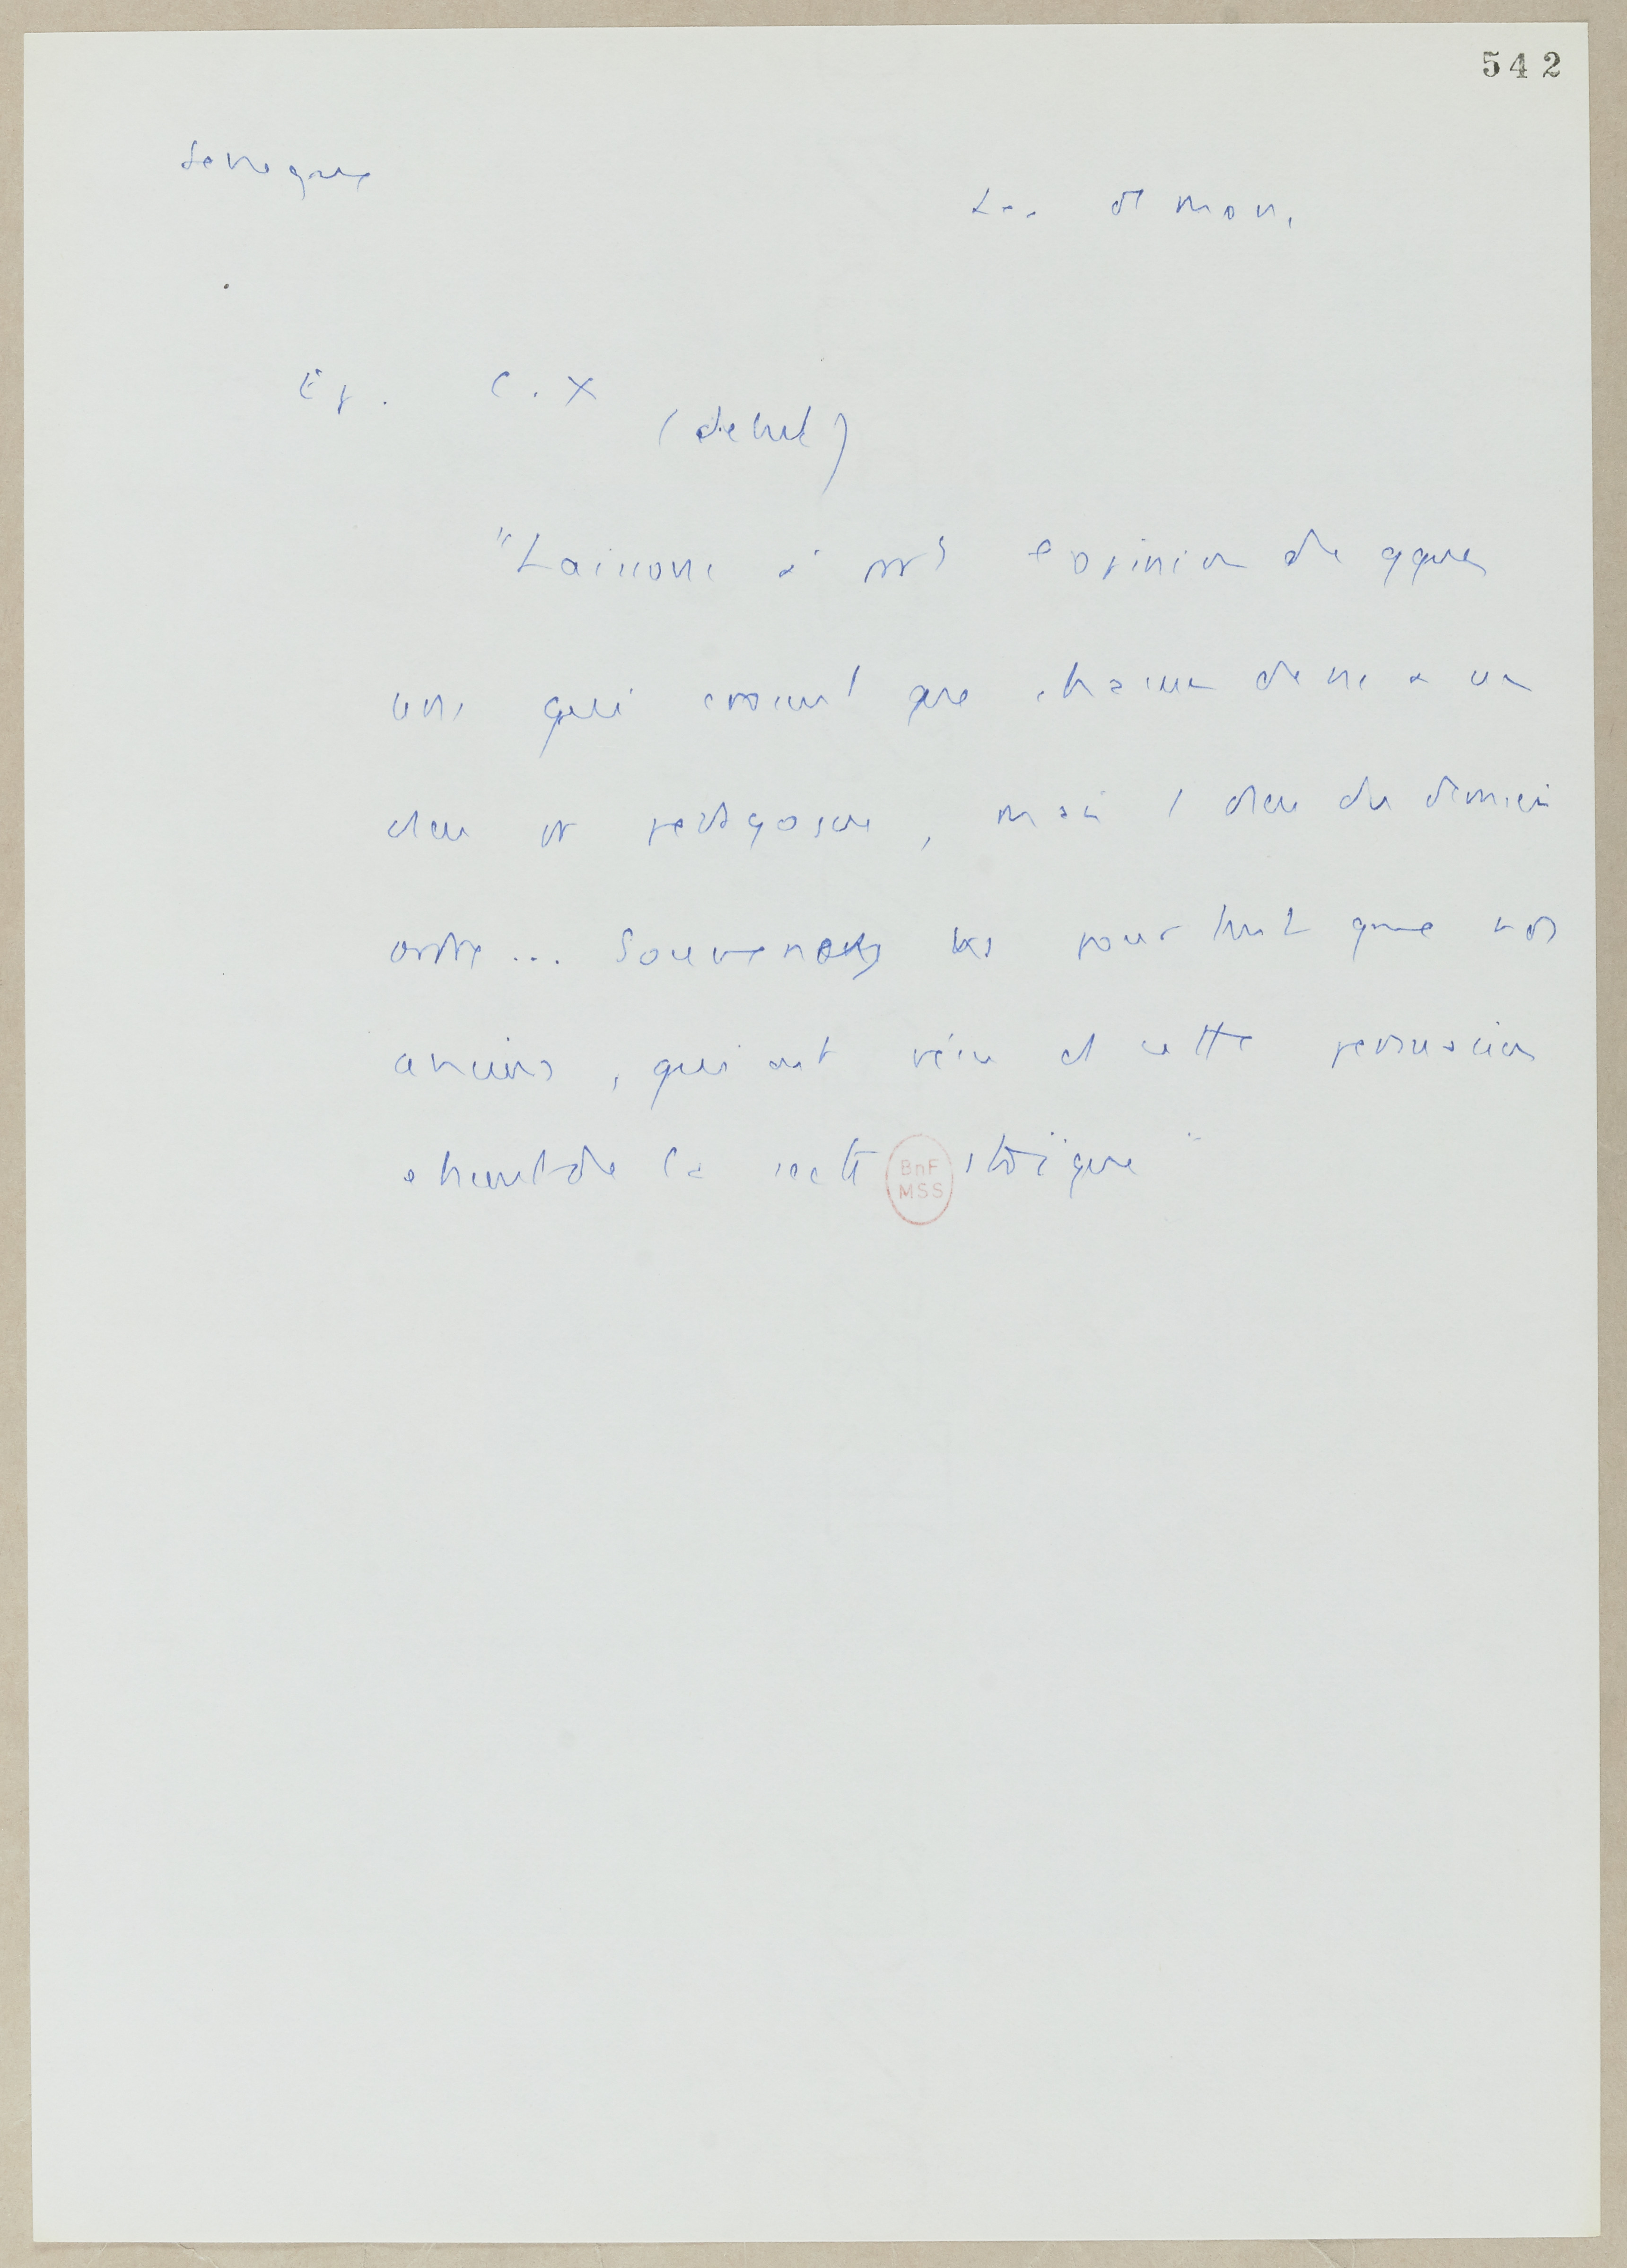 542
Seneque
Les démons
Ep. C.X
(debut)
"Laissons à part l'opinion de qques
uns qui croient que chacun de ns a un
dieu pr pedagogue, mais 1 dieu du dernier
ordre... Souvenez vs pourtant que nos
anciens, qui ont vécu ds cette persuasion
étaient de la secte stoïque"
BnF
MSS